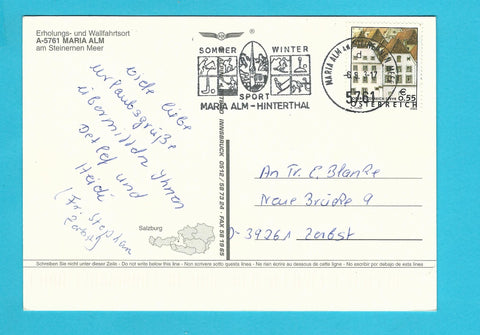 Erholungs- und Wallfahrtsort
A-5761 MARIA ALM
am Steinernen Meer
Viele liebe
Urlaubsgrüße
übermitteln Ihnen
Detlef und
Heidi
(Fr. Stephan
Zerbst)
SOMMER WINTER
SPORT
MARIA ALM – HINTERTHAL
MARIA ALM AM STEINERNEN MEER
5761
€ 0,55
ÖSTERREICH
INNSBRUCK 0512/58 73 24 - FAX 58 1985
An Fr. E. Blanke
Neue Brücke 9
D-39261 Zerbst
Salzburg
Schreiben Sie nicht unter dieser Zeile - Do not write below this line - Non scrivere sotto questa linea - Ne rien écrire au dessous de cette ligne - No escribir por debajo de esta línea